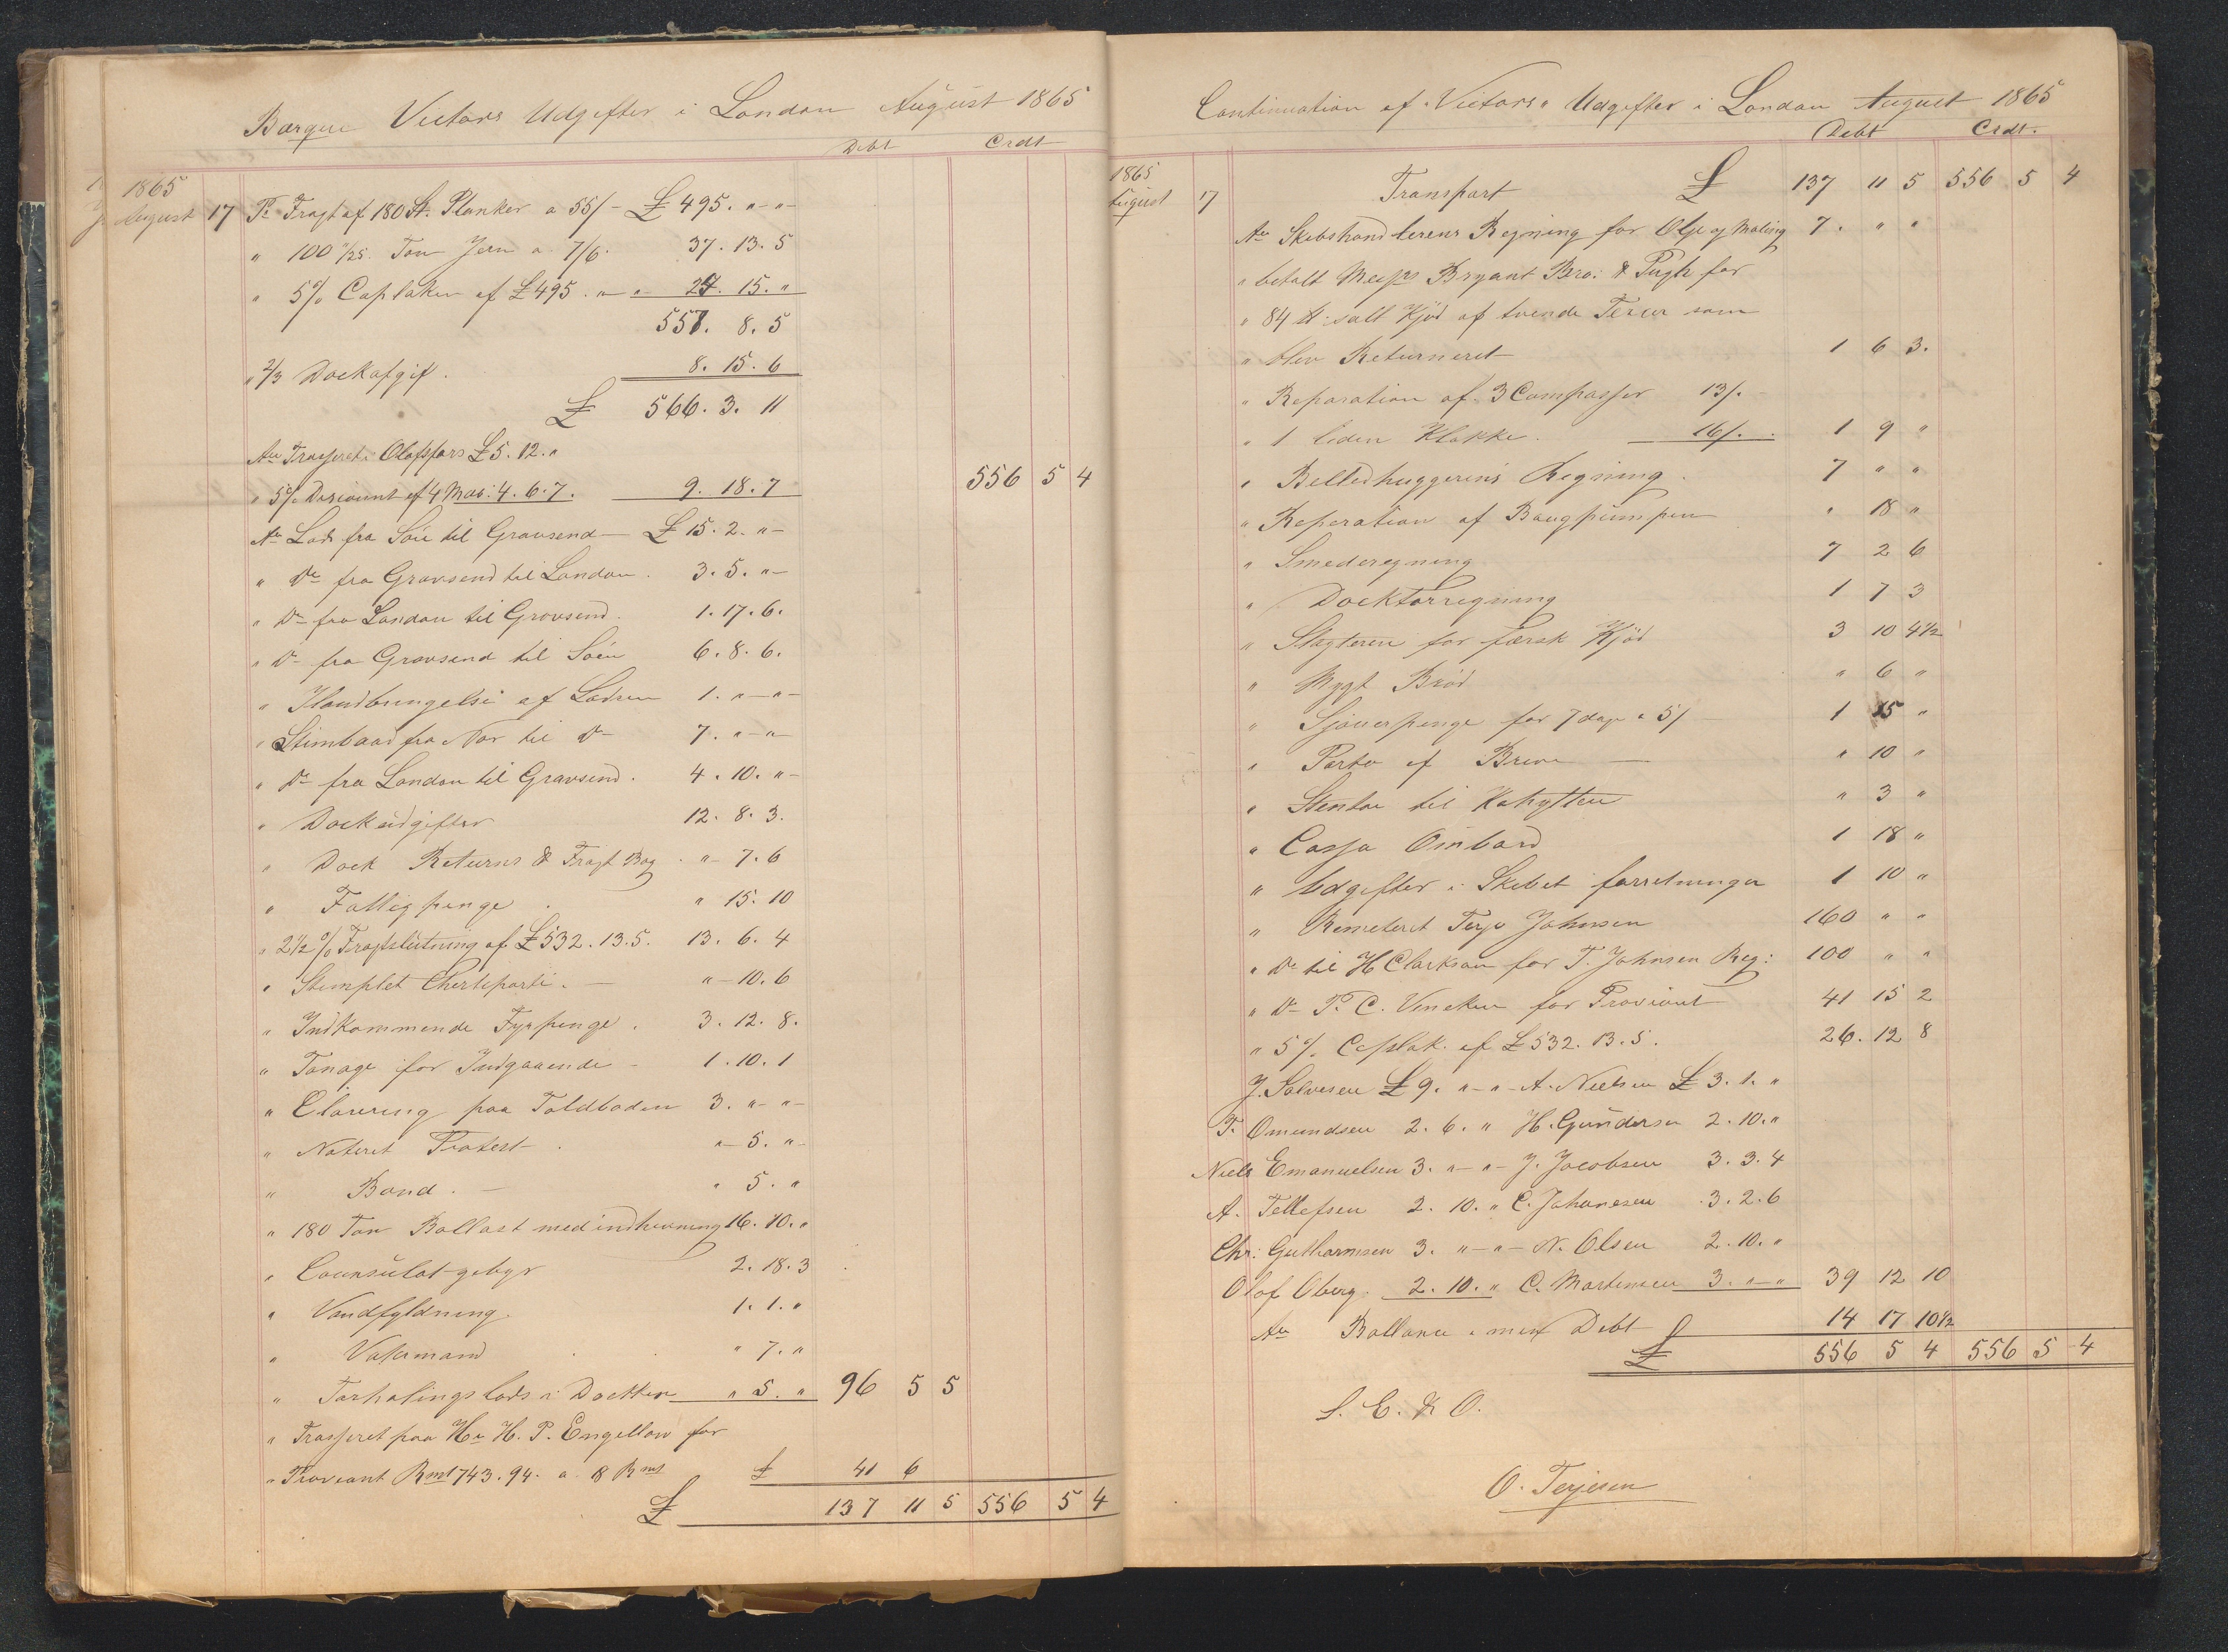 Barque Victors Udgifter i London August 1865
Debt Crdt
1865
August 17 Pr Fragt af 180 St. Planker a 55/- £ 495. " - " -
" 100 11/25 Ton Jern a 7/6. 37. 13. 5
" 5% Caplaken af £495. " - " 24. 15. "
557. 8. 5
" 2/3 Dockafgif. 8. 15. 6
£ 566. 3. 11
An Trasseret Olafsfars £5. 12. "
" 5% Discount af 4 Mds: 4. 6. 7. 9. 18. 7 556 5 4
An Lods fra Söen til Gravsend £ 15. 2. " -
" Do fra Gravsend til London. 3. 5. " -
" Do fra London til Gravsend. 1. 17. 6.
" Do fra Gravsend til Söen 6. 8. 6.
" Ilandbringelse af Lodsen 1. " - " -
" Stimbaad fra Nor til Do 7. " - "
" Do fra London til Gravsend. 4. 10. " -
" Dockudgifter 12. 8. 3.
" Dock Returns & Fragt Bog. " - 7. 6
" Fattigpenge. " 15. 10
" 2 1/2 % Fragtslutning af £532. 13. 5. 13. 6. 4
" Stemplet Cherteparti. - " - 10. 6
" Indkommende Fyrpenge. 3. 12. 8.
" Tonage for Indgaaende - 1. 10. 1
" Clarering paa Toldboden 3. " - " -
" Noteret Protest. " - 5. " -
" Bond. - " 5. "
" 180 Ton Ballast med indhivning 16. 10. "
" Counsulat-gebyr 2. 18. 3
" Vandfyldning. 1. 1. "
" Vakmand " 7. "
" Forhalings lods i Docken " 5. " 96 5 5
" Trasseret paa Hr H. P. Engellow for
" Proveant Rmt 743. 94. a 8 Rmt £ 41 6
£ 137 11 5 556 5 4
Continuation af "Victors" Udgifter i London August 1865
Debt Crdt.
1865
August 17 Transport £ 137 11 5 556 5 4
An Skibshandlerens Regning for Olje og Maling 7. " "
" betalt Messrs Bryant Bro: & Pugh for
" 84 ℔ salt Kjöd af tvende Tercer som
" blev Returneret 1 6 3.
" Reparation af 3 Compasser 13/. -
" 1 liden Klokke. 16/. 1 9 "
" Belledhuggerens Regning. 7 " "
" Reperation af Baugpumpen " 18 "
" Smederegning 7 2 6
" Docktorregning 1 7 3
" Slagteren for færsk Kjöd 3 10 4 1/2
" Mygt Bröd " 6 "
" Sjouerpenge for 7 dage a 5/ - 1 15 "
" Porto af Breve - " 10 "
" Stentöi til Kahytten " 3 "
" Cassa Ombord 1 18 "
" Udgifter i Skibet forretninger 1 10 "
" Remeteret Terje Johnsen 160 " "
" Do til H Clarkson for T. Johnsen Reg: 100 " "
" Do P. C. Vincken for Proviant 41 15 2
" 5% Caplak. af £532. 13. 5. 26. 12 8
J. Salvesen £ 9. " - " - A. Nielsen £ 3. 1. "
T. Omundsen 2. 6. " H. Gundersen 2. 10. "
Niels Emanuelsen 3. " - " - J. Jacobsen 3. 3. 4
A. Tellefsen 2. 10. " C. Johanesen 3. 2. 6
Chr: Guthormsen 3. " - " - N. Olsen 2. 10. "
Olof Oberg. 2. 10. " C. Mortensen 3. " - " 39 12 10
An Ballance i min Debt 14 17 10 1/2
£ 556 5 4 556 5 4
S. E. & O.
O. Terjesen